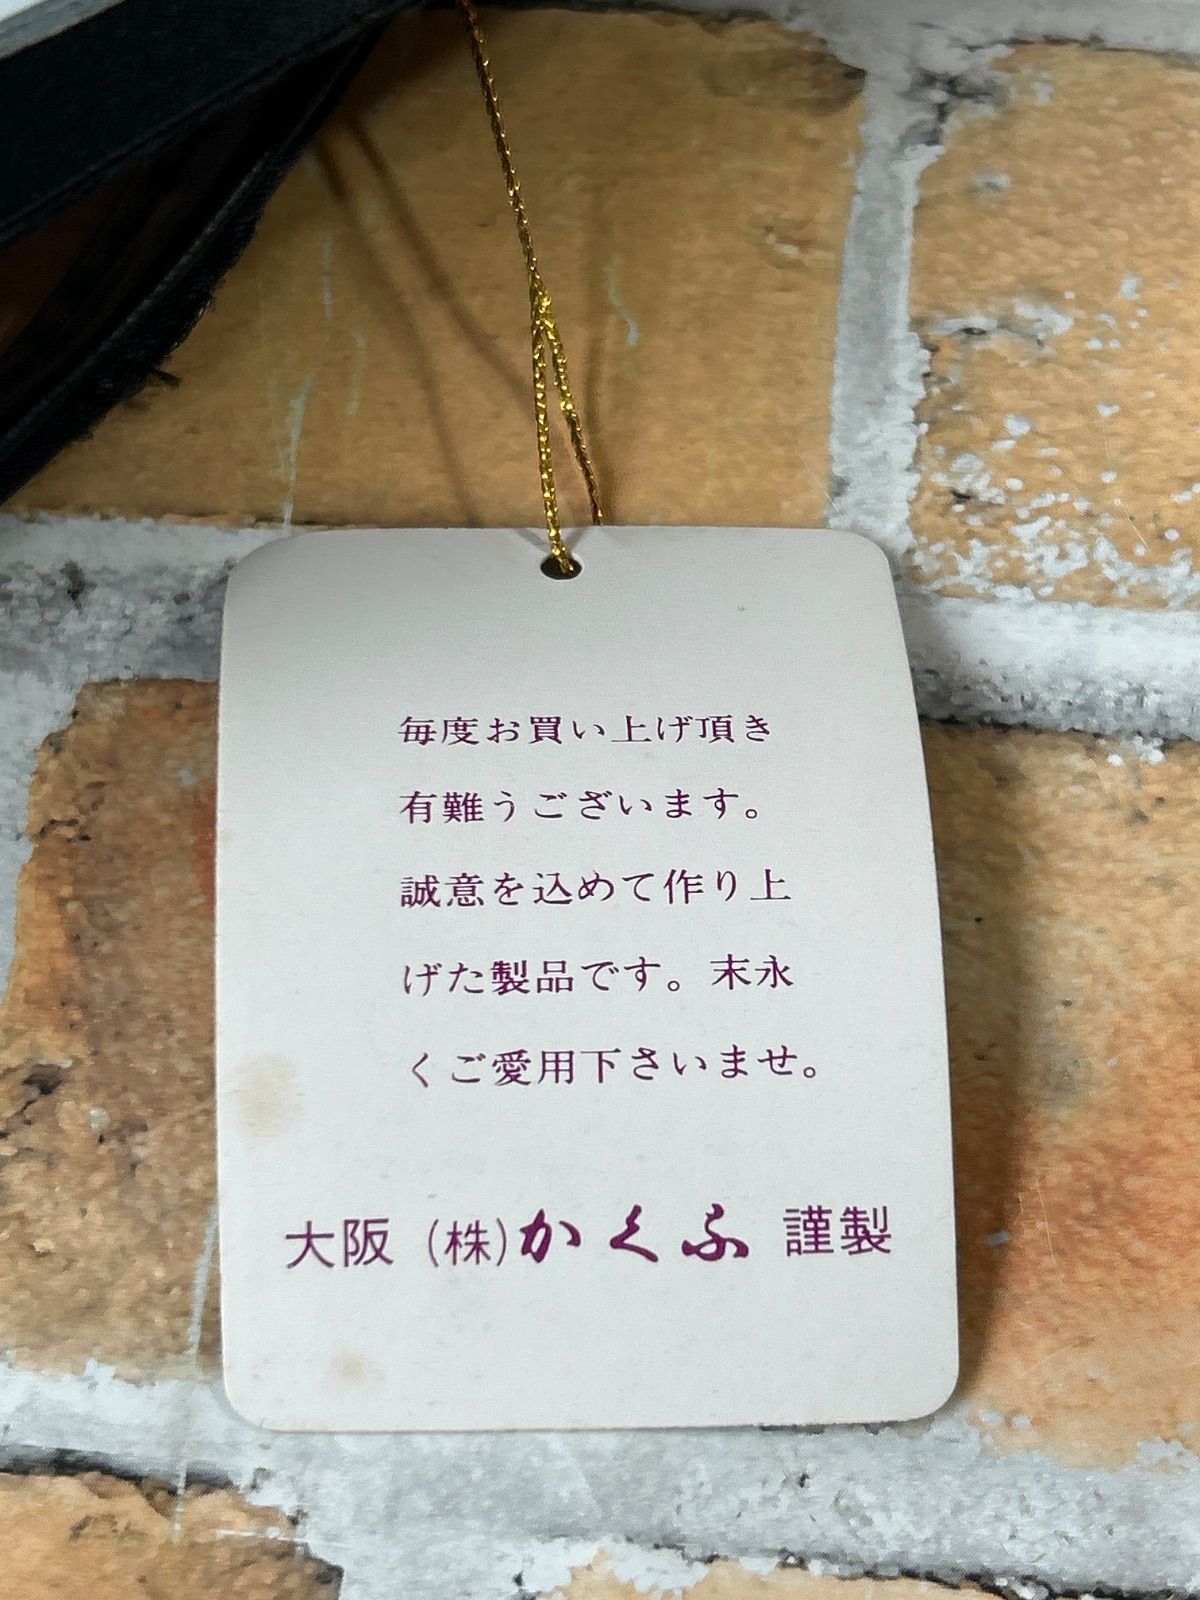 毎度お買い上げ頂き
有難うございます。
誠意を込めて作り上
げた製品です。末永
くご愛用下さいませ。
大阪 (株)かくふ 謹製